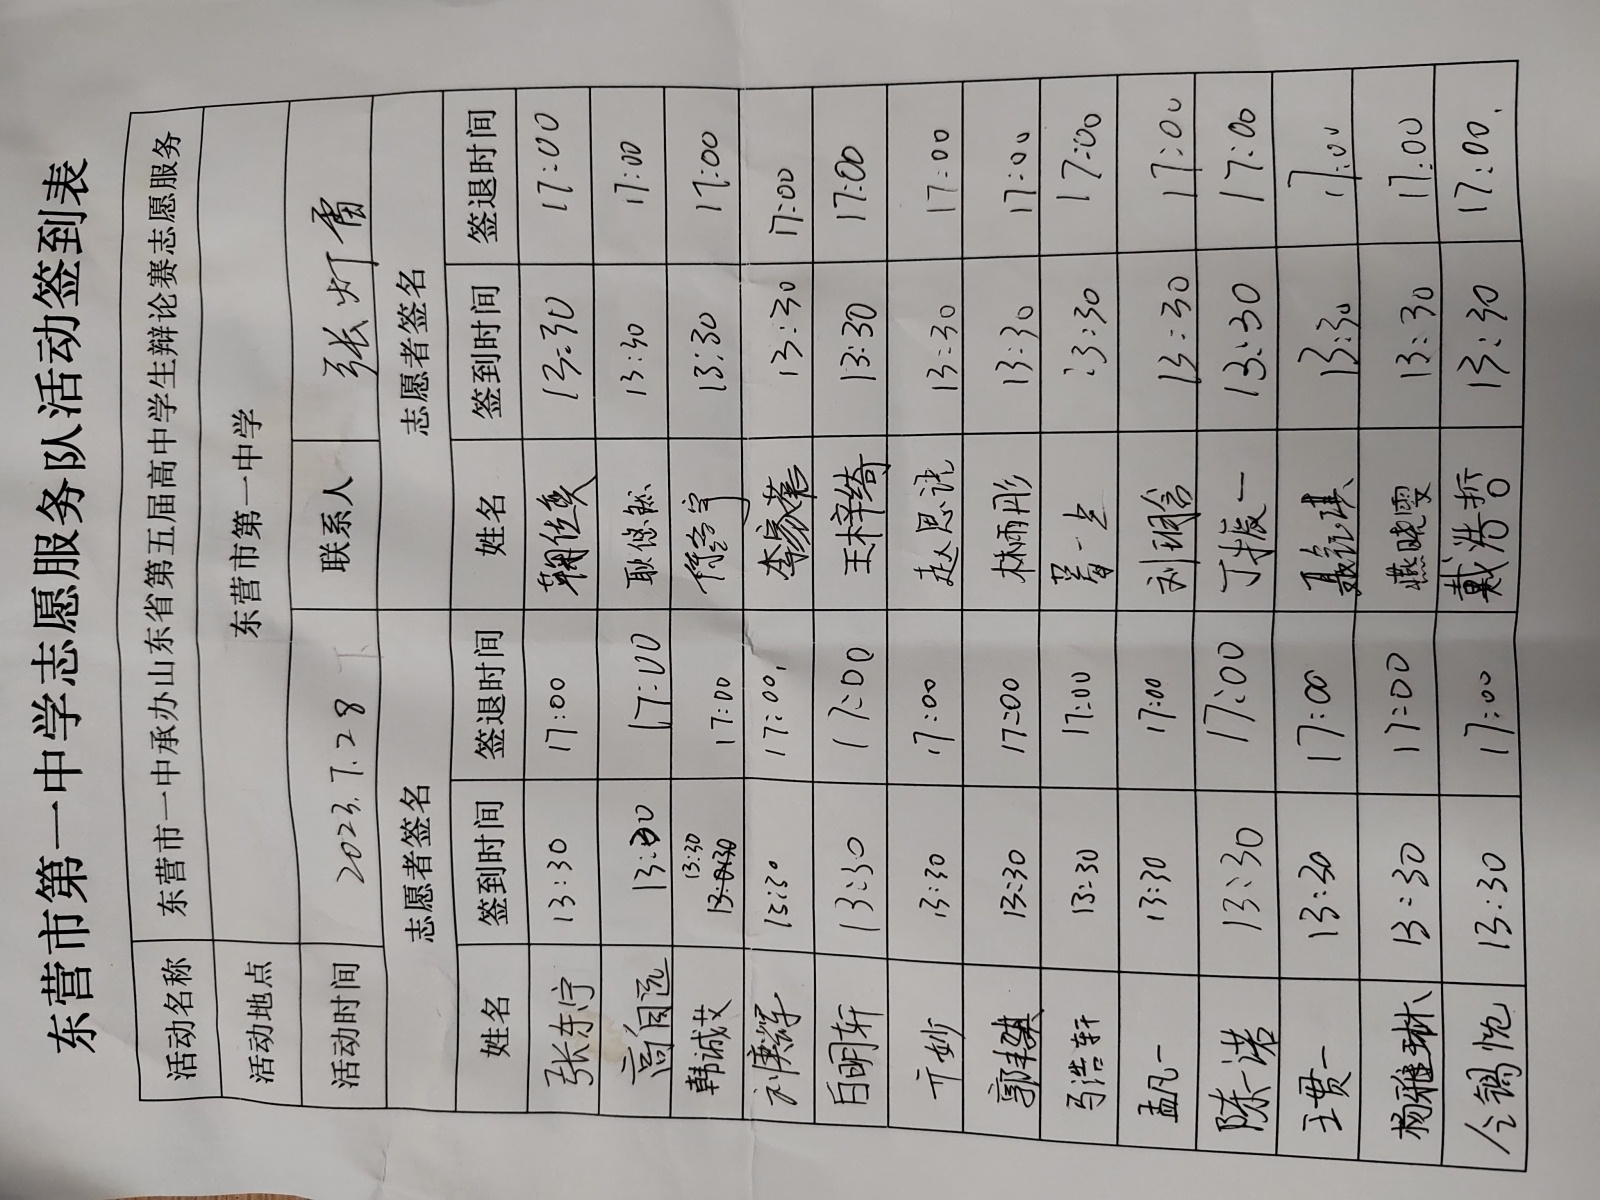 东营市第一中学志愿服务队活动签到表
活动名称 东营市一中承办山东省第五届高中学生辩论赛志愿服务
活动地点 东营市第一中学
活动时间 2023.7.28 下 联系人 张灯雷
志愿者签名 志愿者签名
姓名 签到时间 签退时间 姓名 签到时间 签退时间
张东宁 13:30 17:00 13:30 17:00
高自远 13:30 17:00 耿悠然 13:30 17:00
韩诚艾 13:30 17:00 13:30 17:00
13:30 17:00. 李 13:30 17:00
白明轩 13:30 17:00 王梓绮 13:30 17:00
亓妙 13:30 17:00 赵思 13:30 17:00
郭 琪 13:30 17:00 林雨彤 13:30 17:00
马浩轩 13:30 17:00 一 13:30 17:00
孟凡一 13:30 17:00 刘 13:30 17:00
陈一诺 13:30 17:00 丁振一 13:30 17:00
王贯一 13:30 17:00 聂 琪 13:30 17:00
杨雅琳 13:30 17:00 燕晓雯 13:30 17:00
13:30 17:00 戴浩哲 13:30 17:00.